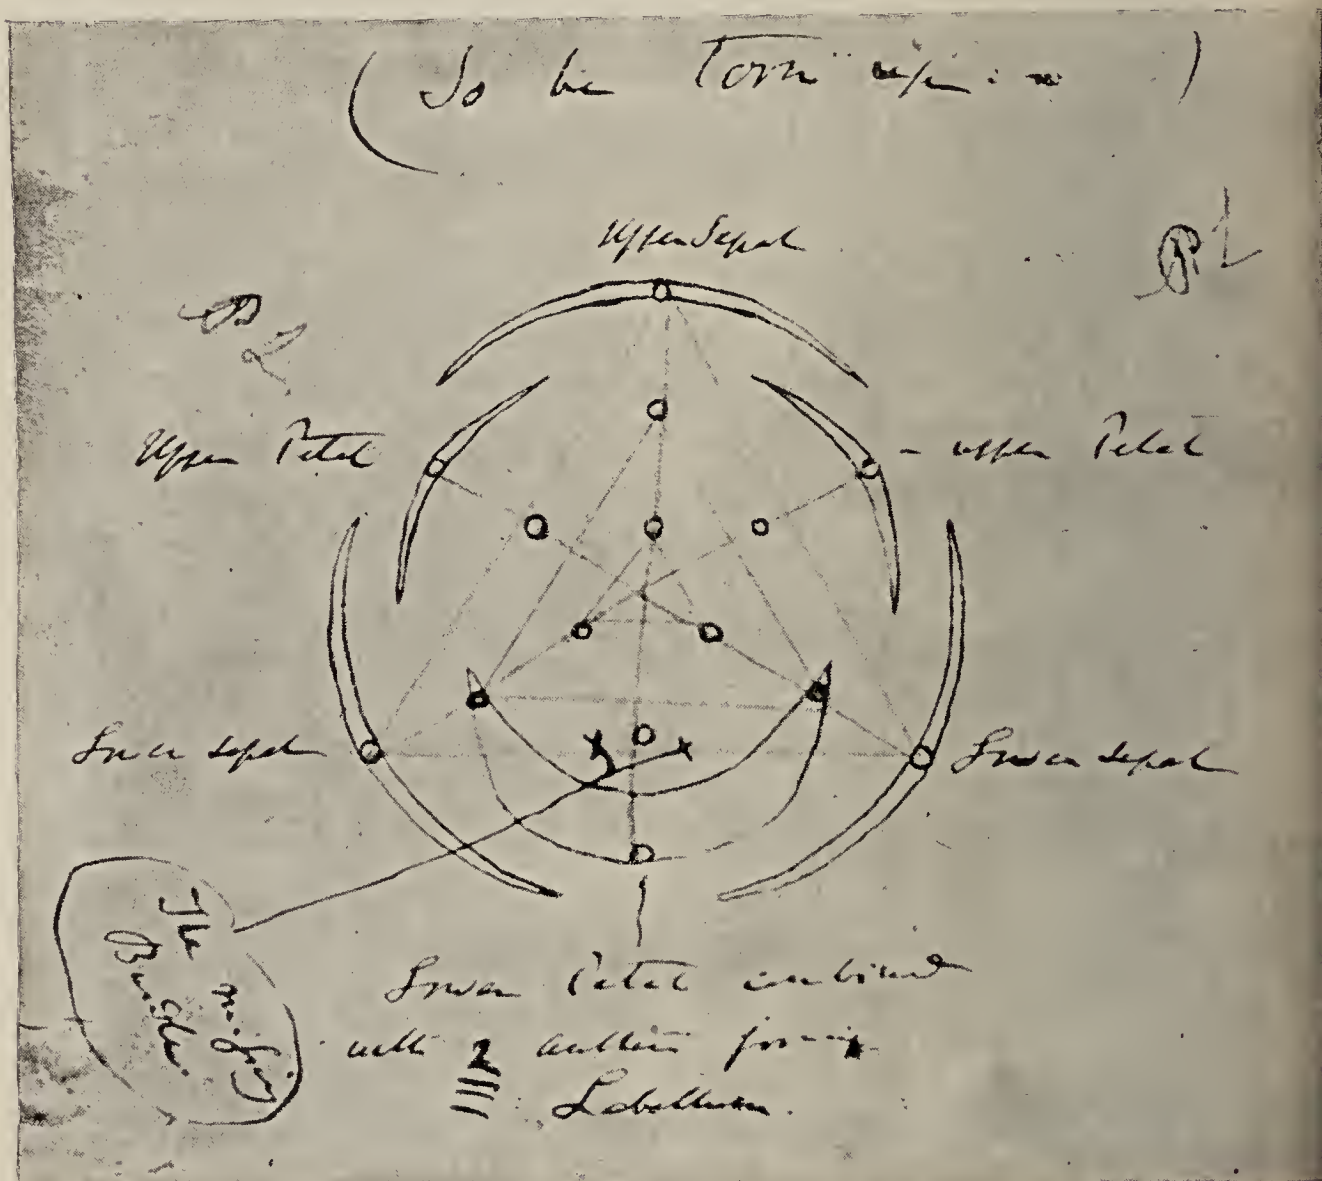 (To be Torn up)
Upper Sepal
Upper Petal
- upper Petal
Lower sepal
Lower sepal
The
Bundles
Lower Petal combined
with 2 anthers forming
Labellum.